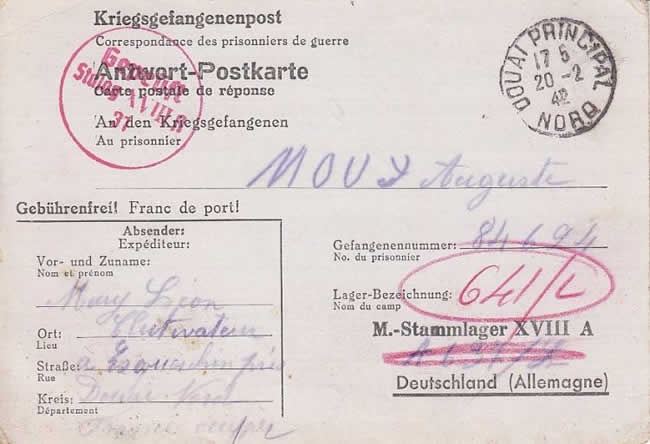 Kriegsgefangenenpost
Correspondance des prisonniers de guerre
Antwort-Postkarte
Carte postale de réponse
An den Kriegsgefangenen
Au prisonnier
Geprüft
Stalag
37
DOUAI PRINCIPAL
17 5
20 -2
42
NORD
MOUY Auguste
Gebührenfrei! Franc de port!
Absender:
Expéditeur:
Vor- und Zuname:
Nom et prénom
Mouy Léon
Ort: Cultivateur
Lieu
Straße: à Esquerchin près
Rue
Kreis: Douai Nord
Département
France occupée
Gefangenennummer: 84694
No. du prisonnier
Lager-Bezeichnung: 641/L
Nom du camp
M.-Stammlager XVIII A
Deutschland (Allemagne)